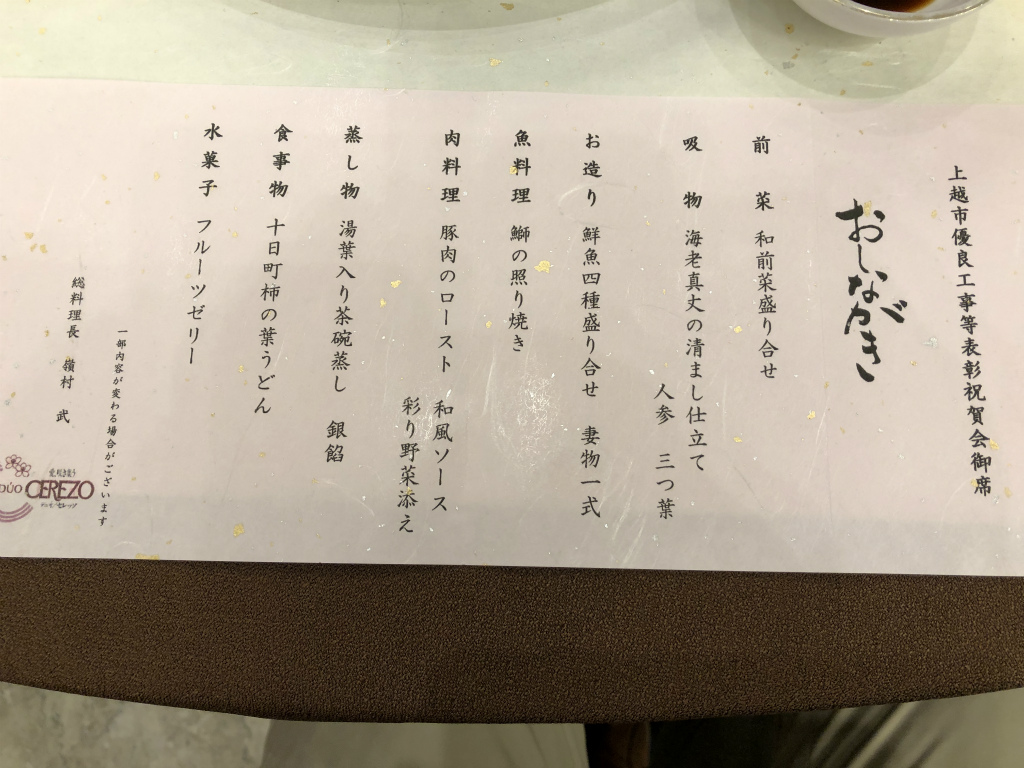 上越市優良工事等表彰祝賀会御席
おしながき
前菜 和前菜盛り合せ
吸物 海老真丈の清まし仕立て
人参 三つ葉
お造り 鮮魚四種盛り合せ 妻物一式
魚料理 鰤の照り焼き
肉料理 豚肉のロースト 和風ソース
彩り野菜添え
蒸し物 湯葉入り茶碗蒸し 銀餡
食事物 十日町柿の葉うどん
水菓子 フルーツゼリー
一部内容が変わる場合がございます
総料理長 嶺村 武
DÚO CEREZO